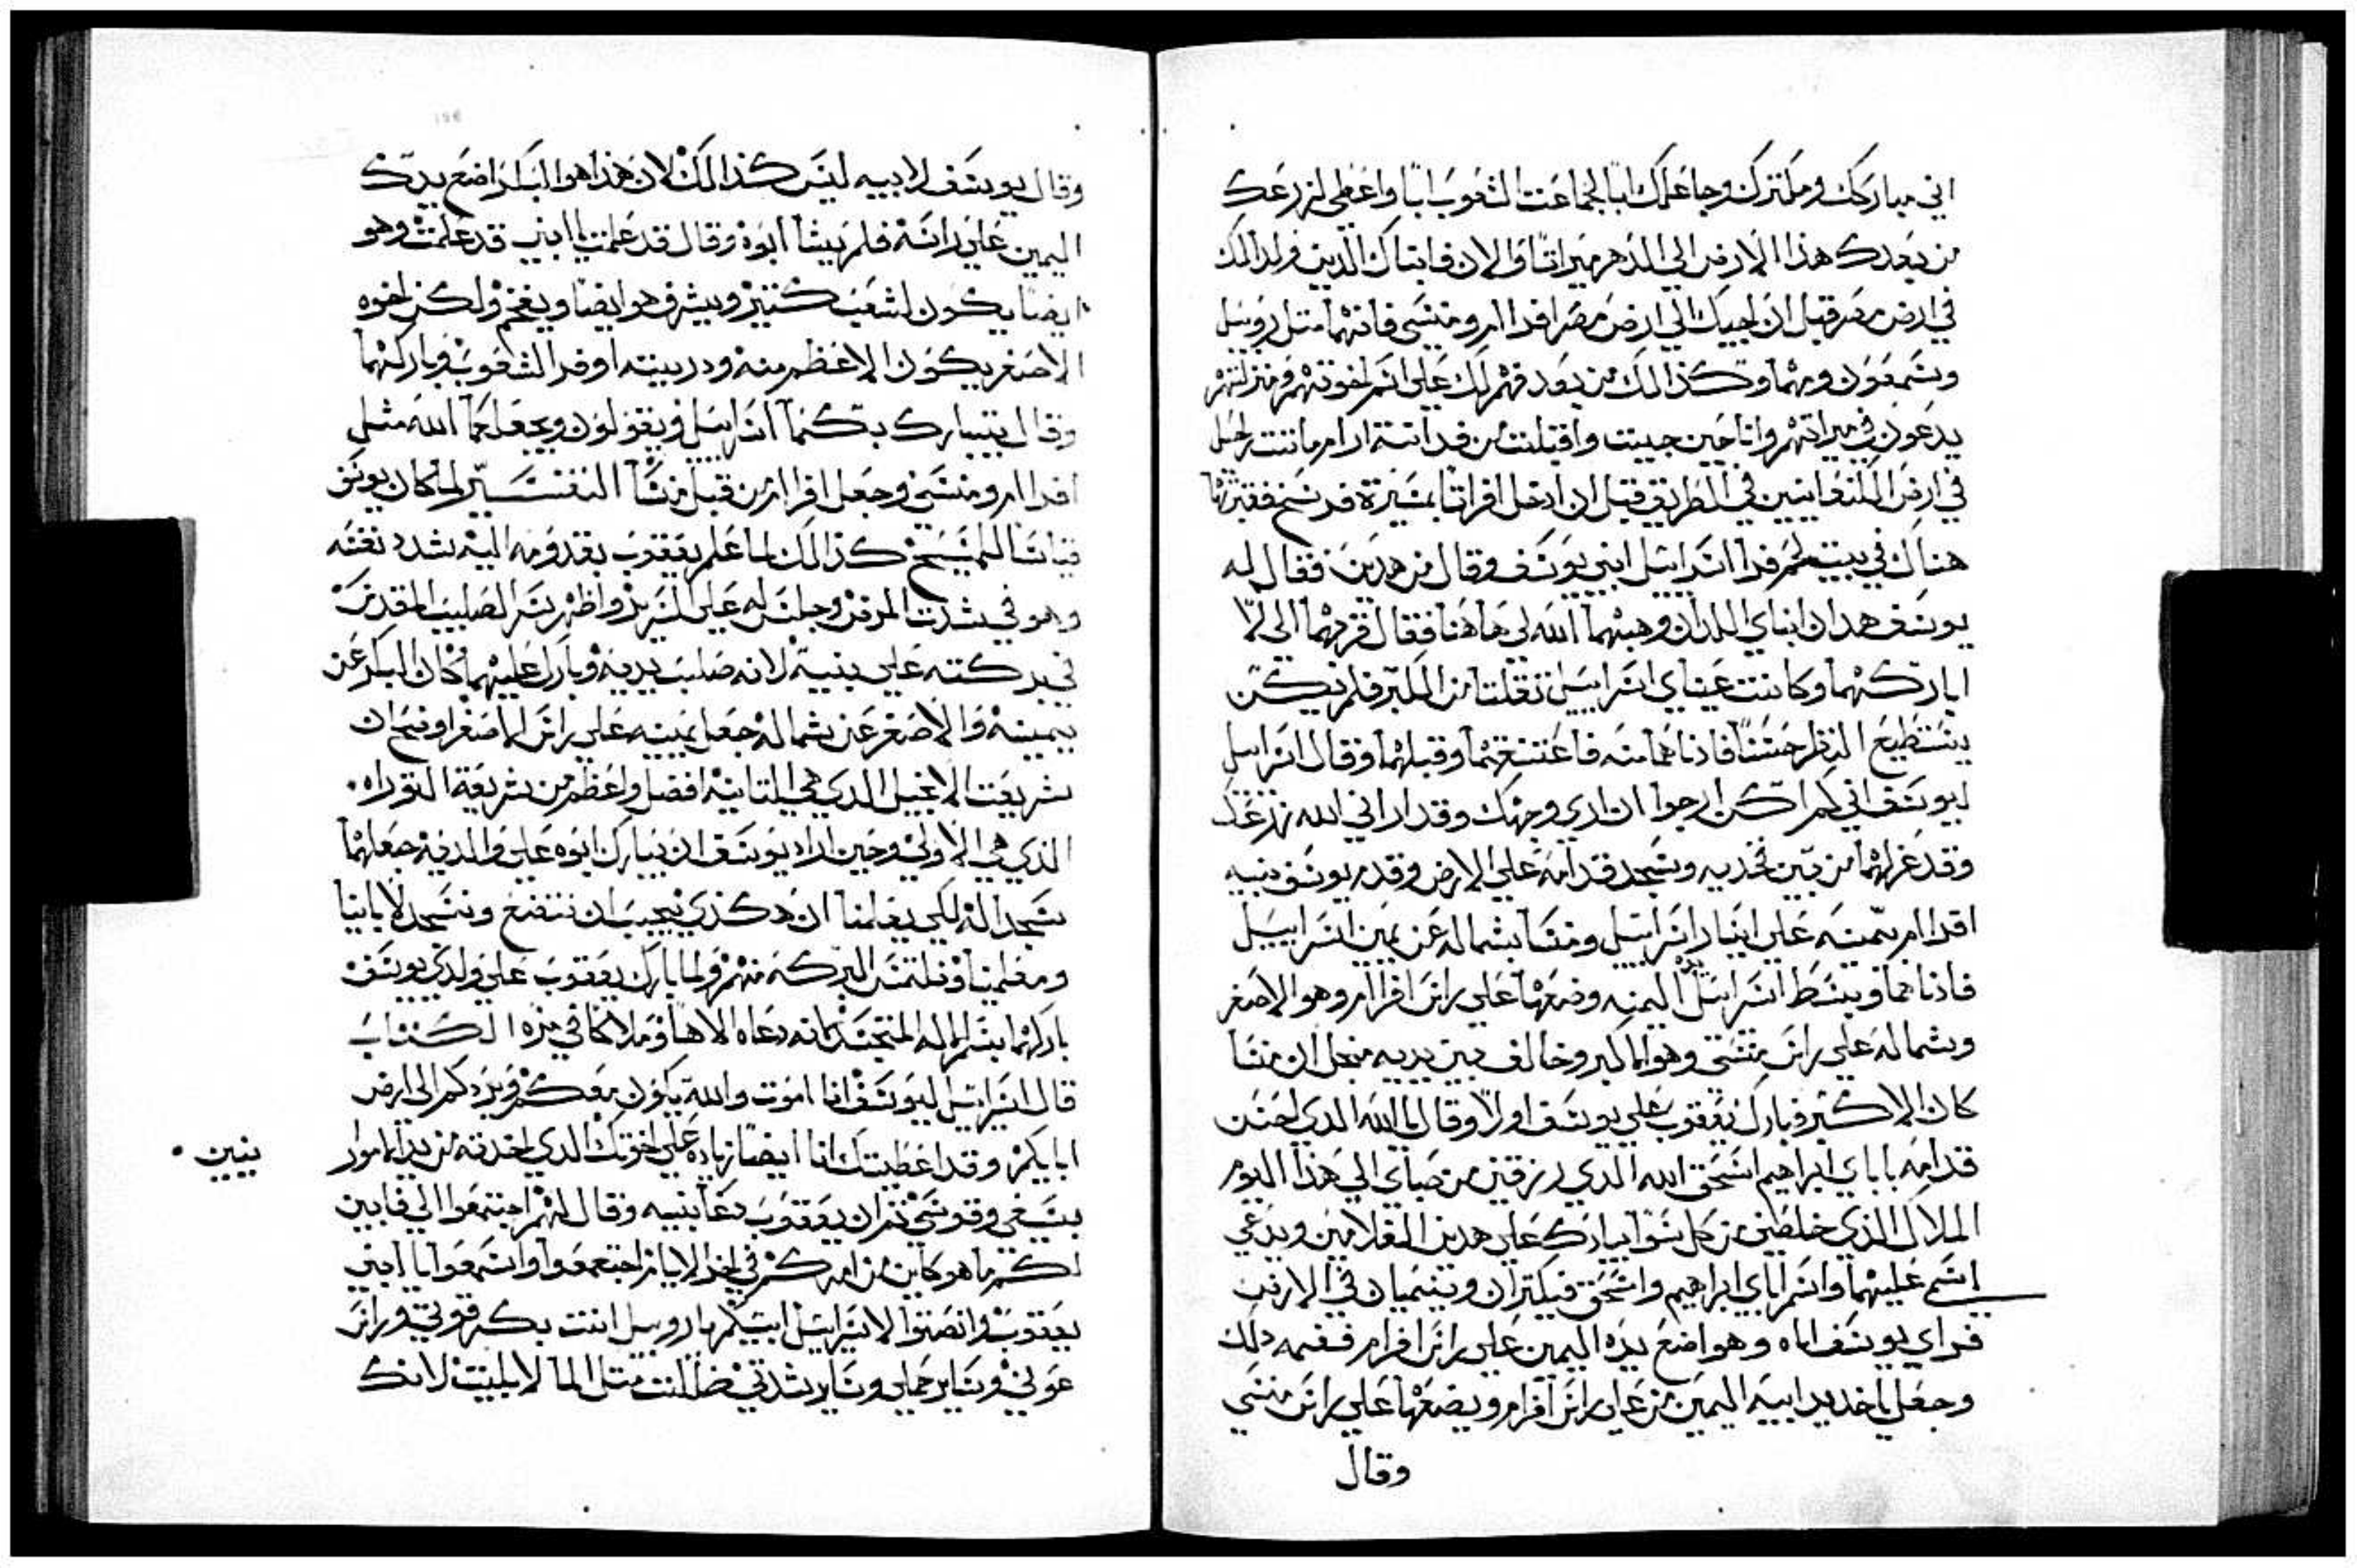 اني مباركك ومكترك وجاعلك ابًا لجماعت الشعوب ابًا واعطي لزرعك
من بعدك هذا الارض الي الدهر ميراتًا والان فابناك الدين ولدا لك
في ارض مصر قبل ان اجيك الي ارض مصر افراام ومنسي فانهما متل روبيل
وشمعون وهما وكذالك من بعدهم لك علي اسم اخوتهم ومنزلتهم
يدعون في ميراتهم وانا حين جييت واقبلت من فدانة ارام ماتت راحيل
في ارض الكنعانيين في الطريق قبل ان ادخل افراتا بمسيرة فرسخ فقبرتها
هناك في بيت لحم فراا اسراييل ابني يوسف وقال من هدين فقال له
يوسف هدان ابناي اللدان وهبهما الله لي هاهنا فقال قربهما الي لا
اباركهما وكانت عيناي اسراييل تقلتا من الكبر فلم يكن
يستطيع النظر حسنًا فادناهما منه فاعتنقهما وقبلهما وقال اسراييل
ليوسف اني لم اكن ارجوا ان اري وجهك وقد اراني الله زرعك
وقد عزلهما من بين فخديه وسجد قدامه علي الارض وقدم يوسف بنيه
افراام بيمينه علي ايسار اسراييل ومنسا بشماله عن يمين اسراييل
فادناهما وبسط اسراييل يده اليمنه وضعها علي راس افراام وهو الاصغر
وشماله علي راس منسي وهو الاكبر وخالف بين يديه منجل ان منسا
كان الاكبر وبارك يعقوب علي يوسف اولًا وقال يا الله الدي احسن
قدامه اباي ابراهيم اسحق الله الدي رزقني من صباي الي هذا اليوم
الملاك الذي خلصني من كل سوا يبارك علي هدين الغلامين ويدعي
اسمي عليهما واسم اباي ابراهيم واسحق فيكتران وينميان في الارض
فراي يوسف اباه وهو اضع يده اليمين علي راس افرام فغمه دلك
وجعل ياخد يد ابيه اليمين من علي راس افرام ويضعها علي راس منسي
وقال
وقال يوسف لابيه ليس كذالك لان هذا هو البكر اضع يدك
اليمين علي راسه فلم يشا ابوه وقال قد علمت يا ابني قد علمت وهو
ايضًا يكون لشعب كتير ويشرف هوا ايضًا ويعظم ولكن اخوه
الاصغر يكون الاعظم منه ودرييته اوفر الشعوب وباركهما
وقال يتبارك بكما اسراييل ويقولون ويجعلكما الله متل
افراام ومنسي وجعل افراام من قبل منسا التفسير لما كان يوسف
قياسًا للمسيح كذالك لما علم يعقوب بقدومه اليه شدد نفسه
وهو في شدت المرض وجلس له علي السرير واظهر سر الصليب المقدس
في بركته علي بنيه لانه صلب يديه وبارك عليهما كان البكر عن
يمينه والاصغر عن شماله جعل يمينه علي راس الاصغر اوضح ان
شريعت الانجيل الدي هي التانيه افضل واعظم من شريعة التوراه
الذي هي الاولي وحين اراد يوسف ان يبارك ابوه علي ولديه جعلهما
سجدا له لكي يعلمنا ان هكذي يجب ان نتضع ونسجد لابانيا
ومعلمينا ونلتمس البركه منهم ولما بارك يعقوب علي ولدي يوسف
باركهما بسر الاله المتجسد لانه دعاه الاهًا وملاكًا في هذه الكتاب
قال اسراييل ليوسف انا اموت والله يكون معكم ويردكم الي ارض
ابايكم وقد اعطيتك انا ايضًا زياده علي اخوتك الدي اخدته من يد الاموار
بنين
بسيفي وقوسي تم ان يعقوب دعا بنيه وقال لهم اجتمعوا الي فابين
لكم ما هو كاين من امركم في اخر الايام اجتمعوا واسمعوا يا ابني
يعقوب وانصتوا لاسراييل ابيكم يا روبيل انت بكر قوتي وراس
عوني وساير حملي وساير شدتي ضللت متل الما لا يلبث لانك